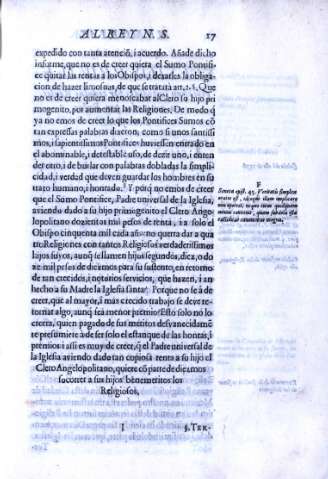 AL REY N. S. 17
expedido con tanta atención, i acuerdo. Añade dicho
informe, que no es de creer quiera el Sumo Pontifi-
ce quitar las rentas a los Obispos, i dexarles la obliga-
cion de hazer limosnas, de que se tratarà art. 2. §. Que
no es de creer quiera menoscabar al Clero su hijo pri-
mogenito, por aumentar las Religiones. De modo q̃
ya no emos de creer lo que los Pontifices Sumos cõ
tan expressas palabras dizeron, como si unos santissi-
mos, i sapientissimos Pontifices huviessen entrado en
el abominable, i detestable uso, de dezir uno, i enten
der otro, i de burlar con palabras dobladas la simpli-
cidad, i verdad que deven guardar los hombres en su
trato humano, i honrado. F Y porq̃ no emos de creer
que el Sumo Pontifice, Padre universal de la Iglesia,
aviendo dado a su hijo primogenito el Clero Ange-
lopolitano dozientos mil pesos de renta, i a solo el
Obispo cinquenta mil cada año no querra dar a qua
tro Religiones con tantos Religiosos verdaderissimos
hijos suyos, aunq̃ se llamen hijos segundos, diez, o do
ze mil pesos de diezmos para su sustento, en retorno
de tan crecidos, i notorios servicios, que hazen, i an
hecho a su Madre la Iglesia santa? Porque no se à de
creer, que al mayor, i à mas crecido trabajo se deve re-
tornar algo, aunq̃ sea menor premio? Esto solo no lo
creerá, quien pagado de sus meritos desvanecidamẽ
te presumiere à de ser solo el estanque de las honras, i
premios: i assi es muy de creer, q̃ el Padre universal de
la Iglesia aviendo dado tan copiosa renta a su hijo el
Clero Angelopolitano, quiere cõ parte de diezmos
socorrer a sus hijos benemeritos los
Religiosos.
F
Seneca epist. 49. Veritatis simplex
oratio est,
I
§. TER-